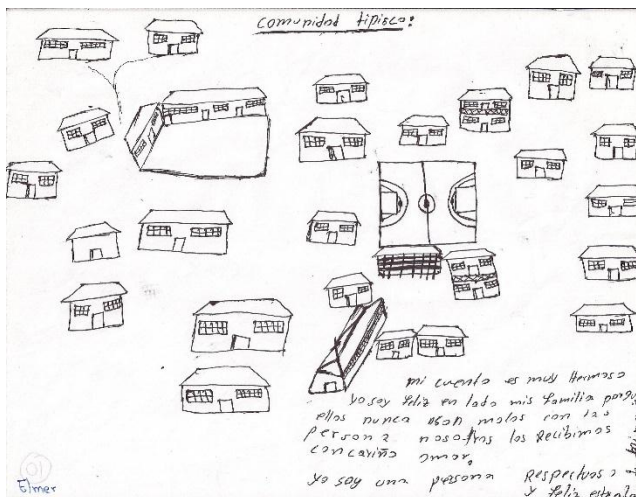 comunidad tipisca:
mi cuento es muy Hermoso
yo soy feliz en lado mis familia
ellos nunca son malos con las
persona nosotros los Recibimos
con cariño amor.
yo soy una persona Respectuos
y feliz
10
Elmer